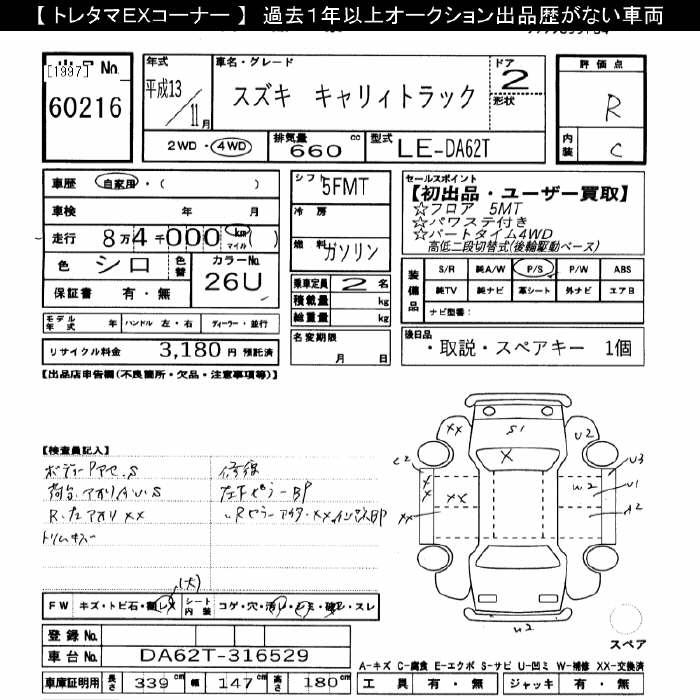 【 トレタマEXコーナー 】 過去1年以上オークション出品歴がない車両
[1997] No.
60216
年式
平成13
11月
車名・グレード
スズキ キャリィトラック
ドア
2
形状
評価点
R
内装
C
2WD・4WD
排気量
660 cc
型式
LE-DA62T
車歴 自家用・( )
車検 年 月
走行 8万4千000 km マイル ( )
色 シロ 色替 カラーNo. 26U
保証書 有・無
シフト 5FMT
冷房
燃料 ガソリン
乗車定員 2 名
積載量 kg
総重量 kg
名変期限 月 日
セールスポイント
【初出品・ユーザー買取】
☆フロア 5MT
☆パワステ付き
☆パートタイム4WD
高低二段切替式(後輪駆動ベース)
装備品
S/R 純A/W P/S P/W ABS
純TV 純ナビ 革シート 外ナビ エアB
ナビ型番:
モデル年式 年 ハンドル 左・右 ディーラー・並行
リサイクル料金 3,180 円 預託済
後日品
・取説・スペアキー 1個
【出品店申告欄(不良箇所・欠品・注意事項等)】
【検査員記入】
R.左アオリ XX
トリムキズ
修復
XX
S1
U2
X
C2
U3
XX
W2
U1
A2
XX
W2
(大)
FW キズ・トビ石・
シート内装 コゲ・穴・汚レ・シミ・破レ・スレ
スペア
登録No.
車台No. DA62T-316529
A-キズ C-腐食 E-エクボ S-サビ U-凹ミ W-補修 XX-交換済
車庫証明用 長さ 339cm 幅 147cm 高さ 180cm
工具 有・無 ジャッキ 有・無